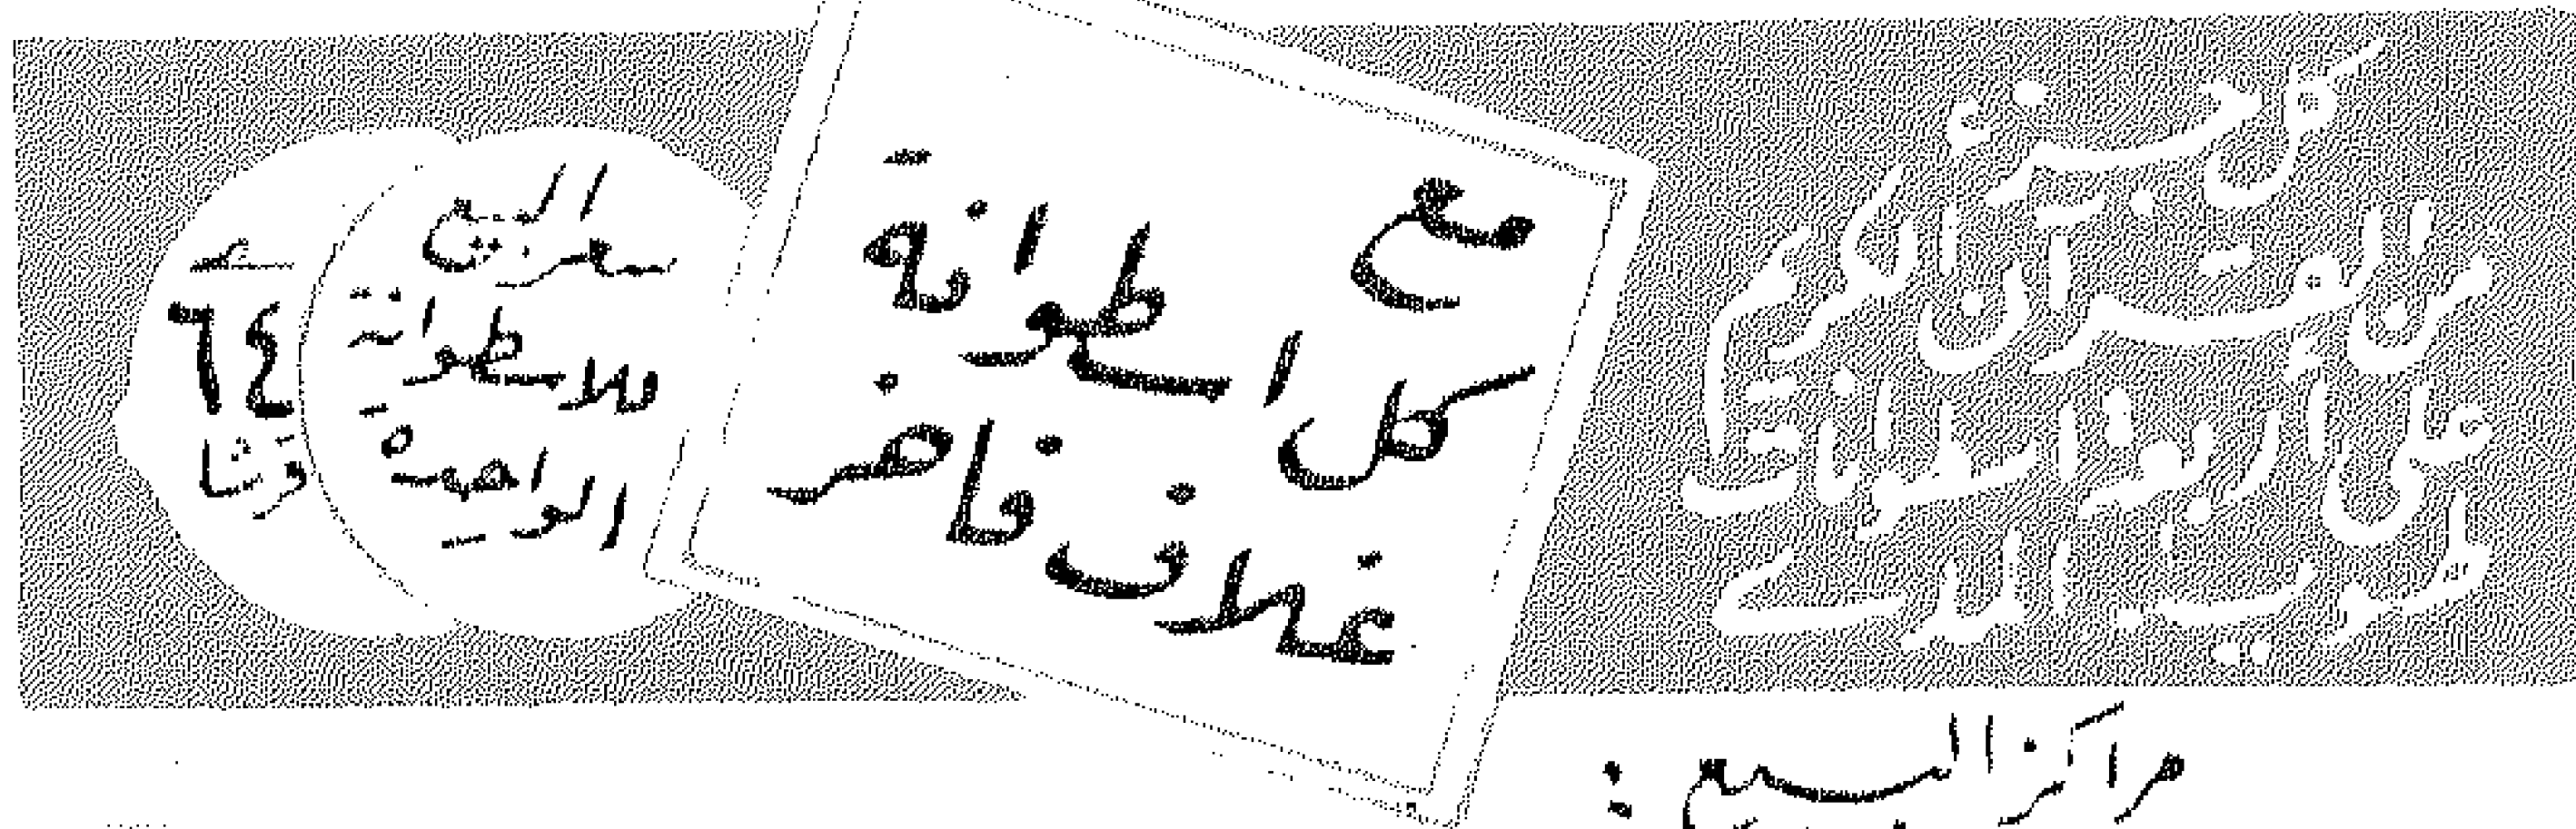 كل جزء
من القرآن الكريم
على أربعة اسطوانات
طويلة المدى
مع
كل اسطوانة
غلاف فاخر
سعر البيع
للاسطوانة
الواحدة
٦٤
قرشا
مراكز البيع :